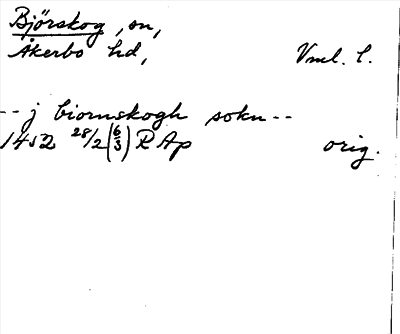 Björskog, sn,
Åkerbo hd, Vml. l.
-- j biornskogh sokn --
1452 28/2 (6/3) RAp orig.